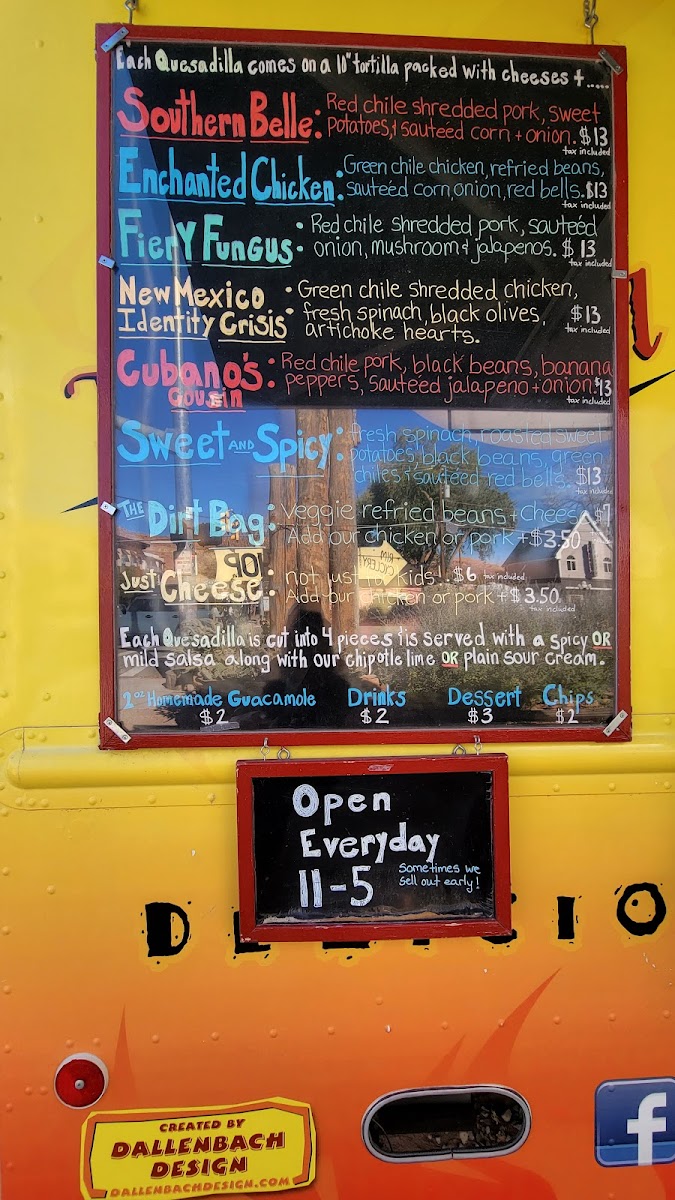 Each Quesadilla comes on a 10" tortilla packed with cheeses + .....
Southern Belle: Red chile shredded pork, sweet
potatoes, & sauteéd corn + onion. $13
tax included
Enchanted Chicken: Green chile chicken, refried beans,
sauteéd corn, onion, red bells. $13
tax included
Fiery Fungus: Red chile shredded pork, sauteéd
onion, mushroom & jalapenos. $13
tax included
New Mexico Green chile shredded chicken,
Identity Crisis: fresh spinach, black olives, $13
artichoke hearts. tax included
Cubano's: Red chile pork, black beans, banana
Cousin peppers, sauteéd jalapeno + onion. $13
tax included
Sweet AND Spicy: fresh spinach, roasted sweet
potatoes, black beans, green
chiles & sauteed red bells. $13
tax included
THE Dirt Bag: Veggie refried beans + cheese $7
Add our chicken or pork + $3.50
Just Cheese: not just for kids.. $6 tax included
Add our chicken or pork + $3.50
tax included
Each Quesadilla is cut into 4 pieces & is served with a spicy OR
mild salsa along with our chipotle lime OR plain sour cream.
2oz Homemade Guacamole Drinks Dessert Chips
$2 $2 $3 $2
Open
Everyday
11-5 Sometimes we
sell out early!
CREATED BY
DALLENBACH
DESIGN
DALLENBACHDESIGN.COM
f